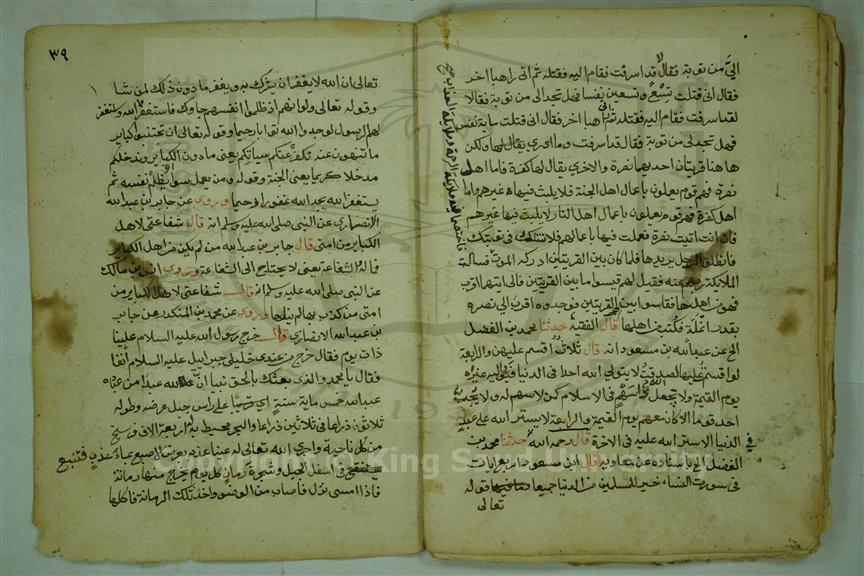 اليّ من توبة فقال لا قد اسرفت فقام اليه فقتله ثم اتى راهبا اخر
فقال انى قتلت تسع وتسعين نفسا فهل تجد لى من توبة فقال لا
لقد اسرفت فقام اليه فقتله ثم اتى راهبا اخر فقال انى قتلت ماية نفس
فهل تجد لى من توبة فقال قد اسرفت وما ادرى يقال لها ولكن
ها هنا قريتان احدهما نصرة والاخرى يقال لها كفرة فاما اهل
نصرة فهم قوم يعملون باعمال اهل الجنة فلا يلبث فيها غيرهم واما
اهل كفرة فهم قوم يعملون باعمال اهل النار لا يلبث فيها غيرهم
فان انت اتيت نصرة فعملت فيها باعمالهم فلا تشك فى توبتك
فانطلق الرجل يريدها فلما كان بين القريتان ادركه الموت فسالت
الملايكة ربهم عنه فقيل لهم قيسوا ما بين القريتين فالى ايتها اقرب
فهو من اهلها فقاسوا بين القريتين فوجدوه اقرب الى نصره
بقدر انملة فكتب من اهلها قال الفقيه حدثنا محمد بن الفضل
الخ عن عبد الله بن مسعود انه قال ثلاث اقسم عليهن والرابعة
لو اقسم عليها لصدقت لا يتولى الله احدا فى الدنيا فيولى اليه غيره
يوم القيمة ولا يجعل الله من اسهم فى الاسلام كمن لا سهم له ولا يحب
احد قوما الا كان معهم يوم القيمة والرابعة لا يستر الله على عبد
فى الدنيا الا ستر الله عليه فى الاخرة قال رحمه الله حدثنا محمد بن
الفضل الخ باسناده عن معاوية قال ابن مسعود اربع ايات
فى سورت النساء خير للمسلمين من الدنيا جميعا قوله
تعالى
٣٩
تعالى ان الله لا يغفر ان يشرك به ويغفر ما دون ذلك لمن شا
وقوله تعالى ولو انهم اذ ظلموا انفسهم جاوك فاستغفروا الله واستغفر
لهم الرسول لوجدوا الله توابا رحيما وقوله تعالى ان تجتنبوا كباير
ما تنهون عنه نكفر عنكم سياتكم يعنى ما دون الكباير وندخلكم
مدخلا كريما يعنى الجنة وقوله ومن يعمل سوأ او يظلم نفسه ثم
يستغفر الله يجد الله غفورا رحيما وروى عن جابر بن عبد الله
الانصارى عن النبى صلى الله عليه وسلم انه قال شفاعتى لاهل
الكباير من امتى قال جابر بن عبد الله من لم يكن من اهل الكباير
فما له والشفاعة يعنى لا يحتاج الى الشفاعة وروى انس بن مالك
عن النبى صلى الله عليه وسلم انه قال شفاعتى لاهل الكباير من
امتى من كذب بها لم ينلها وروى عن محمد بن المنكدر عن جابر
بن عبد الله الانصارى قال خرج رسول الله عليه السلام علينا
ذات يوم فقال خرج من عندى خليلى جبرايل عليه السلام آنفا
فقال يا محمد والذى بعثك بالحق نبيا ان لله عبدا من عباده
عبد الله خمس ماية سنة على راس جبل عرضه وطوله
ثلاثون ذراعا فى ثلاثين ذراعا والبحر محيط به اربعة الاف فرسخ
من كل ناحية واجرى الله تعالى له عينا عذبة بعرض الاصبع بماء عذب فتنبع
فى اسفل الجبل وشجرة رمان كل يوم يخرج منها رمانة
فاذا امسى نزل فاصاب من الوضو واخذ تلك الرمانة فاكلها
Copyright © King Saud University